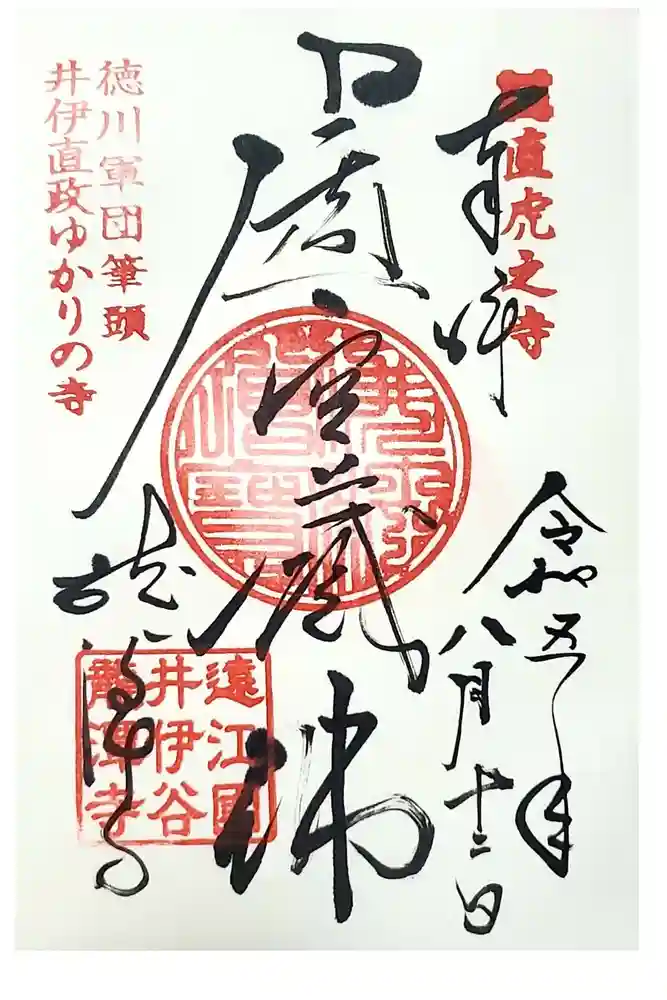 直虎之寺
奉拝
令和五年
八月十二日
虚空蔵佛
龍潭寺
遠江國
井伊谷
龍潭寺
徳川軍団筆頭
井伊直政ゆかりの寺